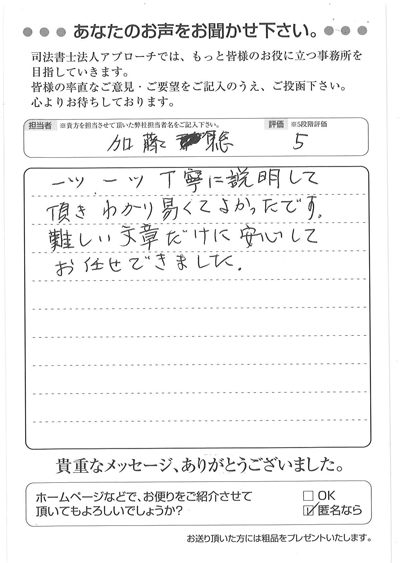 ●●●●あなたのお声をお聞かせ下さい。●●●●
司法書士法人アプローチでは、もっと皆様のお役に立つ事務所を
目指していきます。
皆様の率直なご意見・ご要望をご記入のうえ、ご投函下さい。
心よりお待ちしております。
担当者 ※貴方を担当させて頂いた弊社担当者名をご記入下さい。 評価 ※5段階評価
加藤 聡 5
一ツ一ツ丁寧に説明して
頂きわかり易くてよかったです.
難しい文章だけに安心して
お任せできました.
貴重なメッセージ、ありがとうございました。
ホームページなどで、お便りをご紹介させて
頂いてもよろしいでしょうか?
□ OK
☑ 匿名なら
お送り頂いた方には粗品をプレゼントいたします。